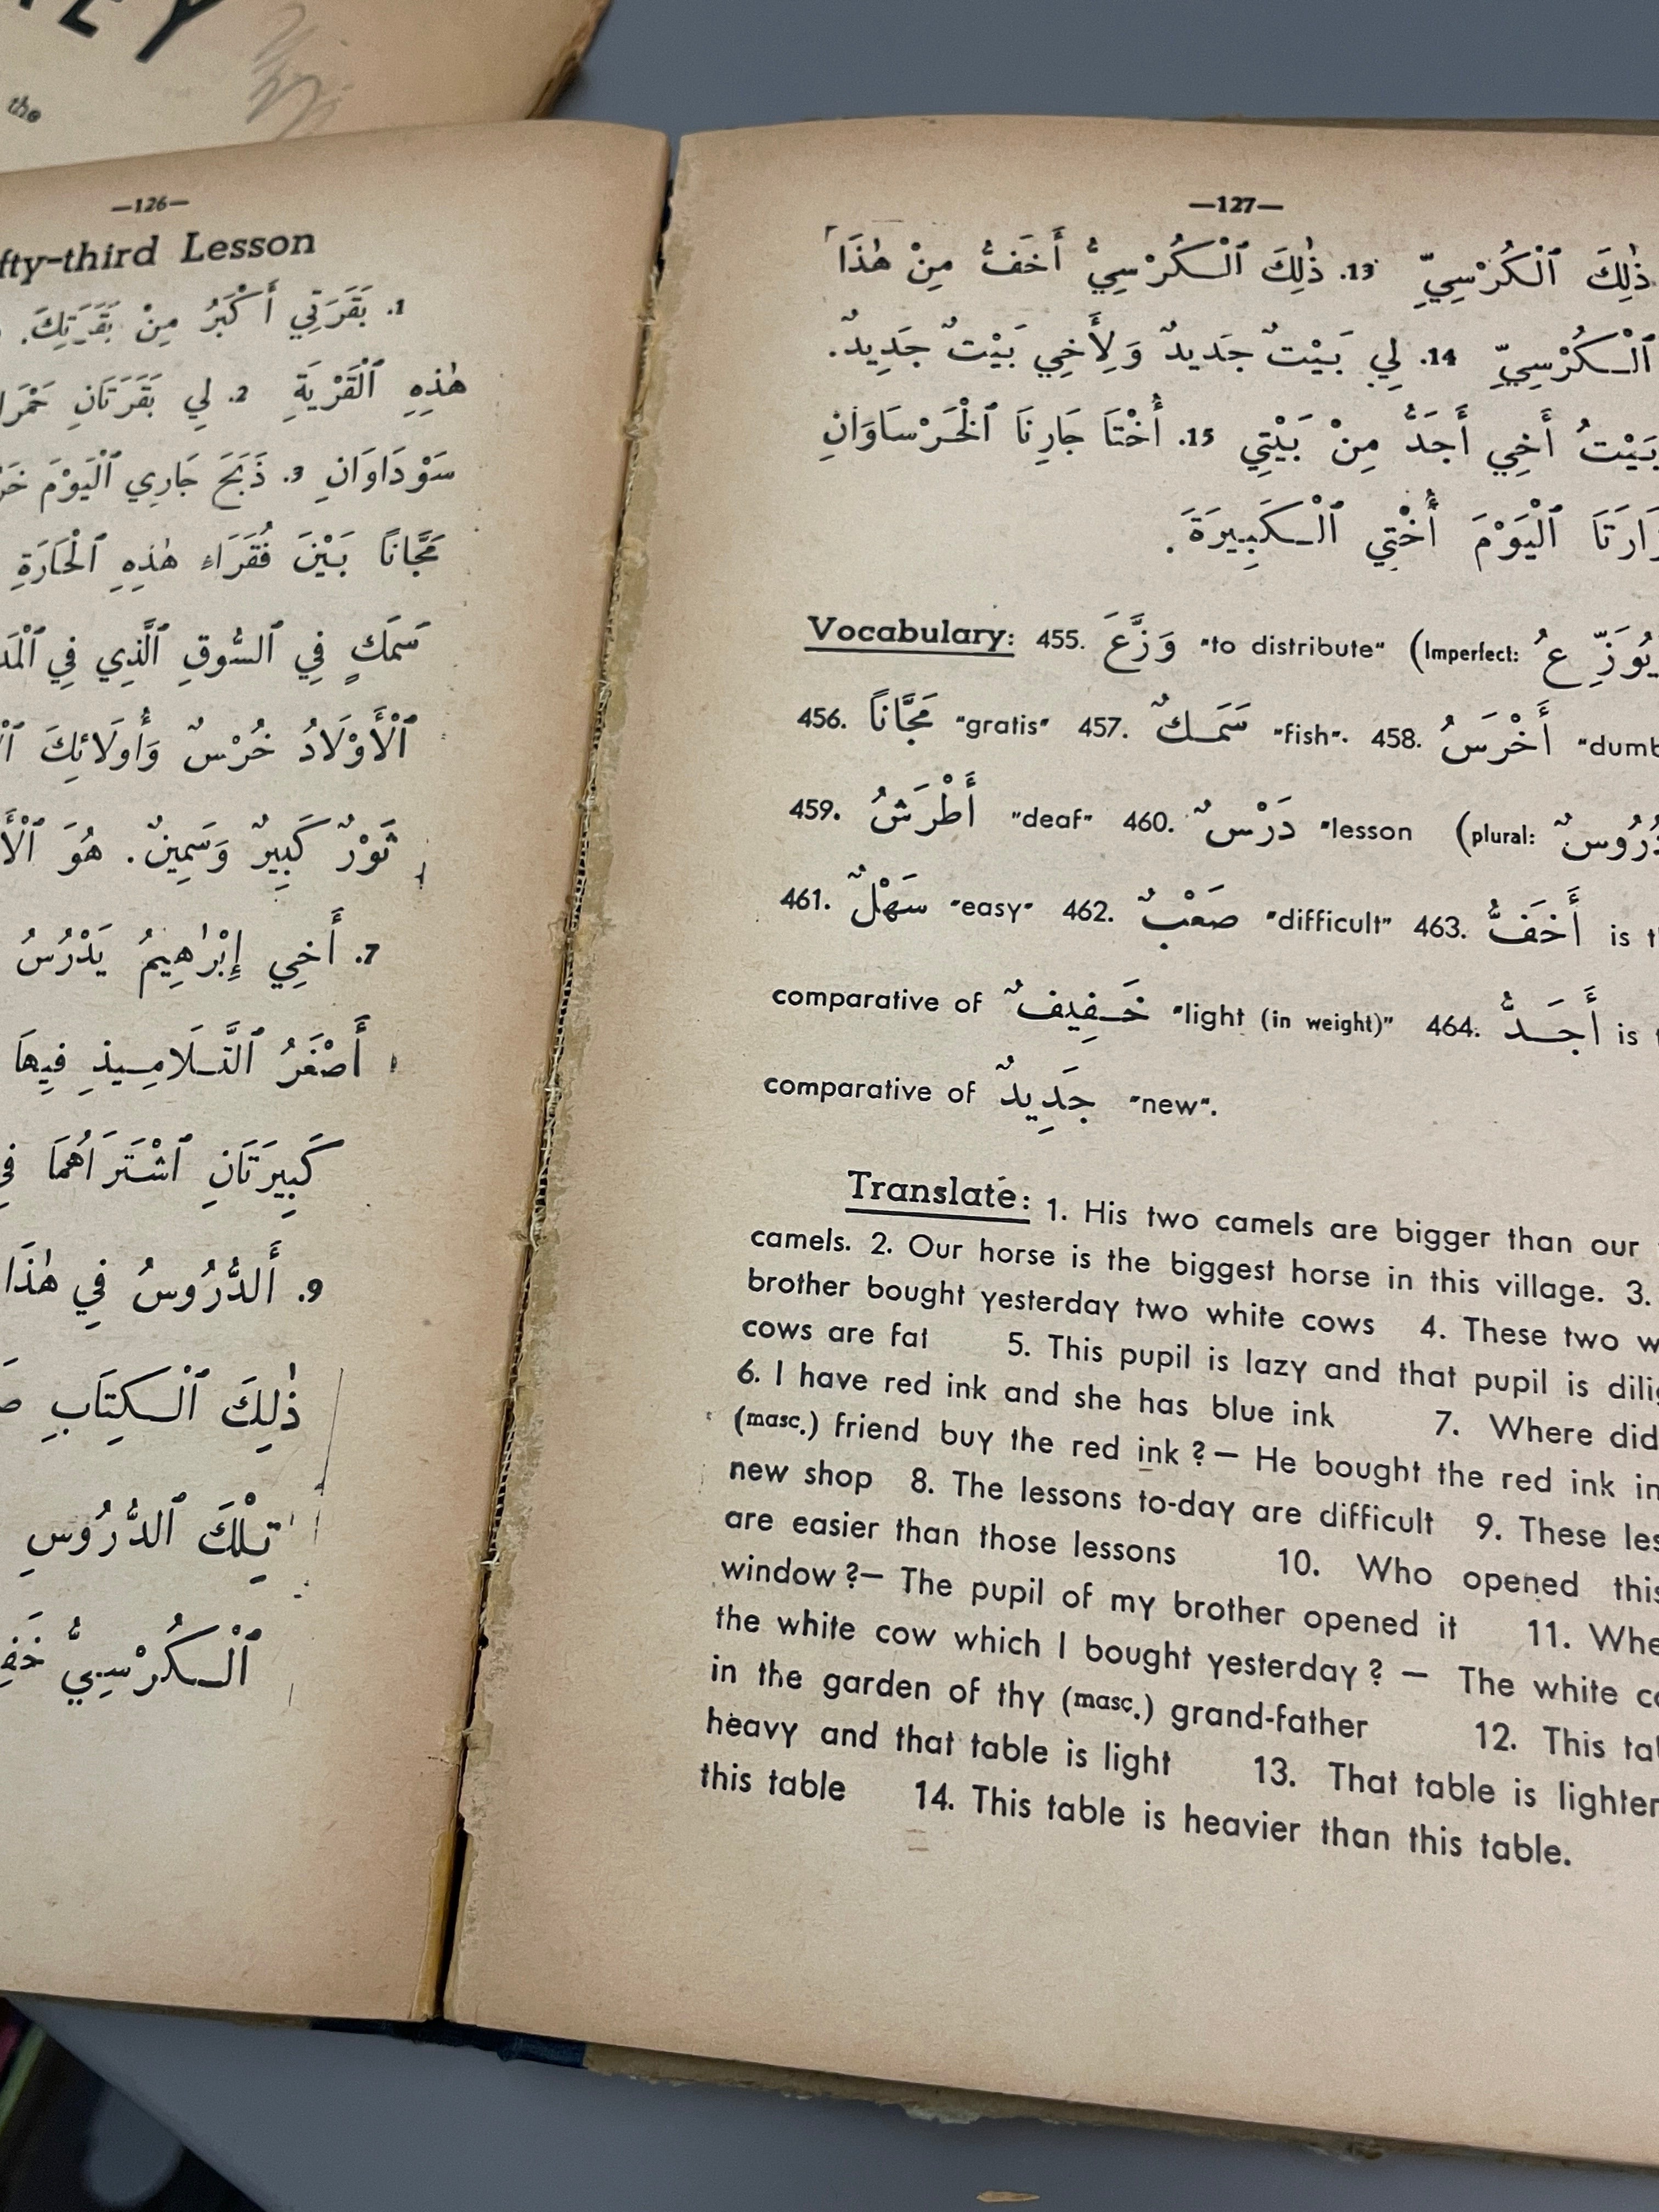 the
—126—
Lesson
1. بَقَرَتِي أَكْبَرُ مِنْ بَقَرَتِكَ.
هٰذِهِ ٱلْقَرْيَةِ 2. لِي بَقَرَتَانِ
سَوْدَاوَانِ 3. ذَبَحَ جَارِي ٱلْيَوْمَ
مَجَّاناً بَيْنَ فُقَرَاءِ هٰذِهِ ٱلْحَارَةِ
سَمَكٍ فِي ٱلسُّوقِ ٱلَّذِي فِي
ٱلْأَوْلَادُ خُرْسٌ وَأُولَائِكَ
ثَوْرٌ كَبِيرٌ وَسَمِينٌ. هُوَ
7. أَخِي إِبْرٰهِيمُ يَدْرُسُ
أَصْغَرُ ٱلتَّلَامِيذِ فِيهَا
كَبِيرَتَانِ ٱشْتَرَاهُمَا
9. أَلدُّرُوسُ فِي هٰذَا
ذٰلِكَ ٱلْكِتَابِ
تِلْكَ ٱلدُّرُوسِ
ٱلْكُرْسِيُّ
—127—
ذٰلِكَ ٱلْكُرْسِيِّ 13. ذٰلِكَ ٱلْكُرْسِيُّ أَخَفُّ مِنْ هٰذَا
ٱلْكُرْسِيِّ 14. لِي بَيْتٌ جَدِيدٌ وَلِأَخِي بَيْتٌ جَدِيدٌ.
بَيْتُ أَخِي أَجَدُّ مِنْ بَيْتِي 15. أُخْتَا جَارِنَا ٱلْخَرْسَاوَانِ
زَارَتَا ٱلْيَوْمَ أُخْتِي ٱلْكَبِيرَةَ.
Vocabulary: 455. وَزَّعَ "to distribute" (Imperfect: يُوَزِّعُ
456. مَجَّاناً "gratis" 457. سَمَكٌ "fish". 458. أَخْرَسُ
459. أَطْرَشُ "deaf" 460. دَرْسٌ "lesson (plural: دُرُوسٌ
461. سَهْلٌ "easy" 462. صَعْبٌ "difficult" 463. أَخَفُّ is
comparative of خَفِيفٌ "light (in weight)" 464. أَجَدُّ is
comparative of جَدِيدٌ "new".
Translate: 1. His two camels are bigger than our
camels. 2. Our horse is the biggest horse in this village. 3.
brother bought yesterday two white cows 4. These two
cows are fat 5. This pupil is lazy and that pupil is
6. I have red ink and she has blue ink 7. Where did
(masc.) friend buy the red ink ? — He bought the red ink in
new shop 8. The lessons to-day are difficult 9. These
are easier than those lessons 10. Who opened this
window ?— The pupil of my brother opened it 11.
the white cow which I bought yesterday ? — The white
in the garden of thy (masc.) grand-father 12. This
heavy and that table is light 13. That table is lighter
this table 14. This table is heavier than this table.